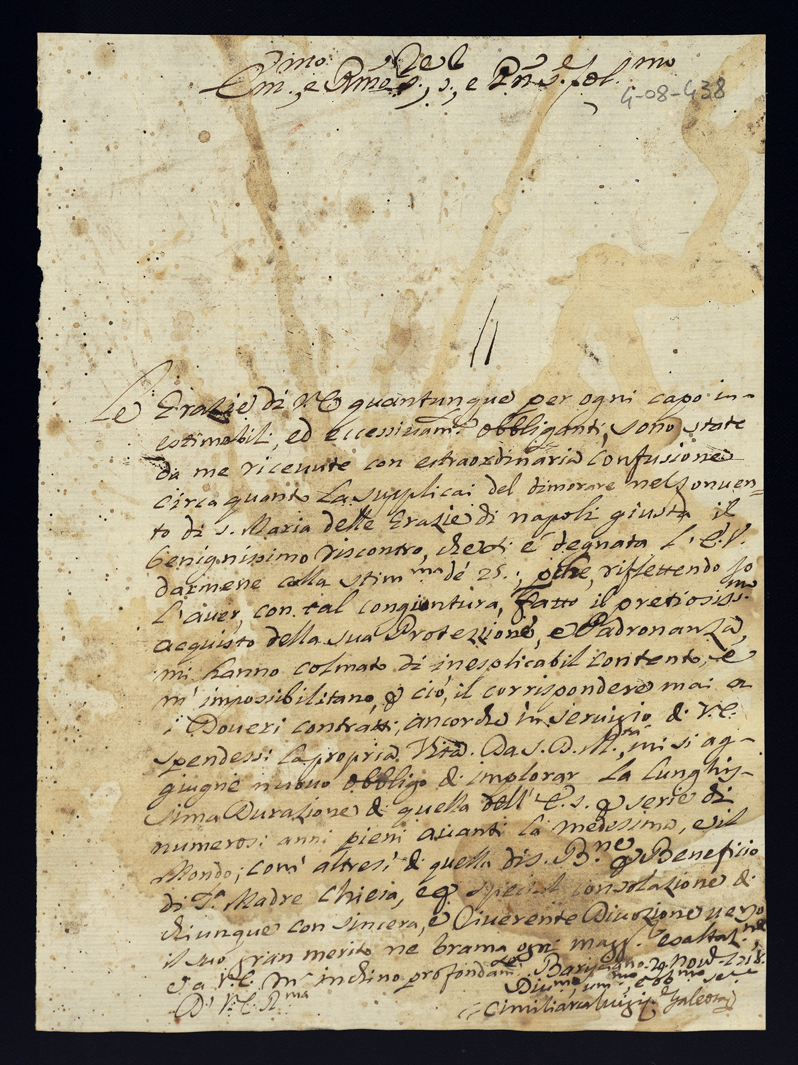 Em.mo, e R.mo S.re, S.re, e P.ne Col.mo
4-08-438
Le Grazie di V.E. quantunque per ogni capo in-
estimabili, ed eccessivam.te obbliganti, sono state
da me ricevute con estraordinaria confusione
circa quanto La supplicai del dimorare nel Conven=
to di S. Maria delle Grazie di Napoli giusta il
benignissimo riscontro, che si è degnata l'E.V.
darmene colla stim.ma de' 25.; pure, riflettendo Io
l'aver, con tal congiontura, fatto il pretiosiss.mo
acquisto della sua Protezzione, e Padronanza,
mi hanno colmato di inesplicabil contento, e
m'impossibilitano, p ciò, il corrispondere mai a
i Doveri contratti, ancorche in servizio di V.E.
spendessi la propria Vita. Da S.D.M. mi si ag-
giugne nuovo obbligo d'implorar la lunghis-
sima Durazione di quella dell'E.S. p serie di
numerosi anni pieni avanti la medesima, e il
Mondo; com'altresì di quella di S. B.ne p Beneficio
di S.ta Madre Chiesa, e p special consolazione di
chiunque con sincera, e riverente Divozione verso
il suo gran merito ne brama ogni magg.e esaltaz.ne,
e a V.E. m'inchino profondam.te Barisciano 29 Nov.e 1718
D'V.E. R.ma
Div.mo, um.mo, e obb.mo ser.e